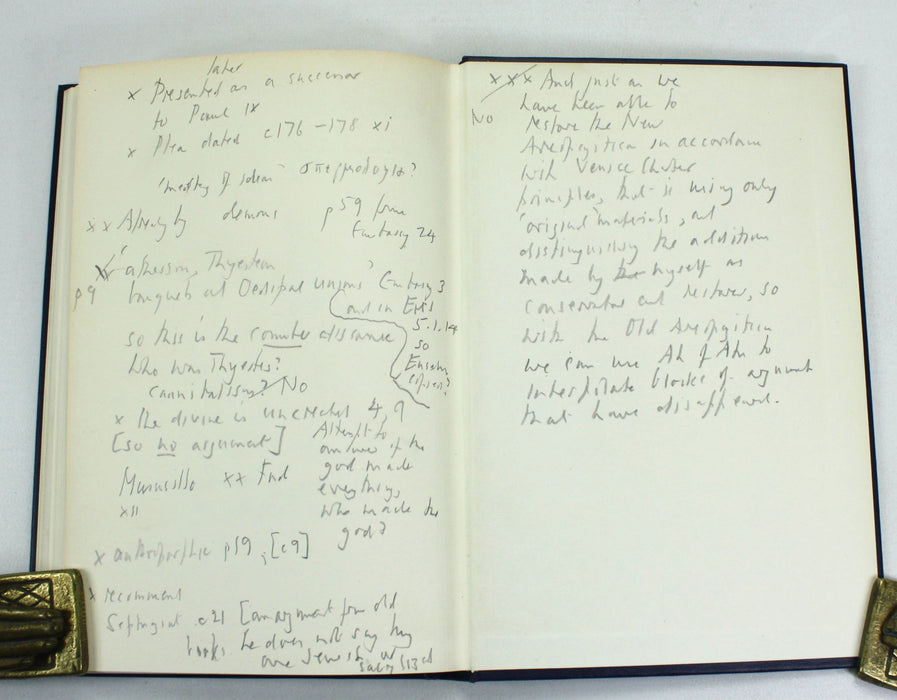 later
x Presented as a successor
to Paul IX
x Plea dated c176 – 178 xi
'medley of ideas' σπερμολογια?
xx Already by demons p59 from
Embassy 24
x 'atheism, Thyestean
p9 banquets and Oedipal unions' Embassy 3
and in EH's
5.1.14
so this is the counter dissuance
so
Who was Thyestes?
cannibalism? No
x the divine is uncreated 4, 9
[so no argument] Attempt to
answer if the
god made
everything,
who made the
god?
Marcusillo xx Find
xii
x anthropathic p59, [c9]
x recommend
Septuagint c21 [an argument from old
books he does not say they
are Jewish, or
sacred
xxx And just as we
No have been able to
restore the New
Areopagitica in accordance
with Venice Charter
principles, that is using only
'original' materials, and
distinguishing the additions
made by myself as
conservator and restorer, so
with the Old Areopagitica
we can use Ah of Ath to
interpolate blocks of argument
that have disappeared.